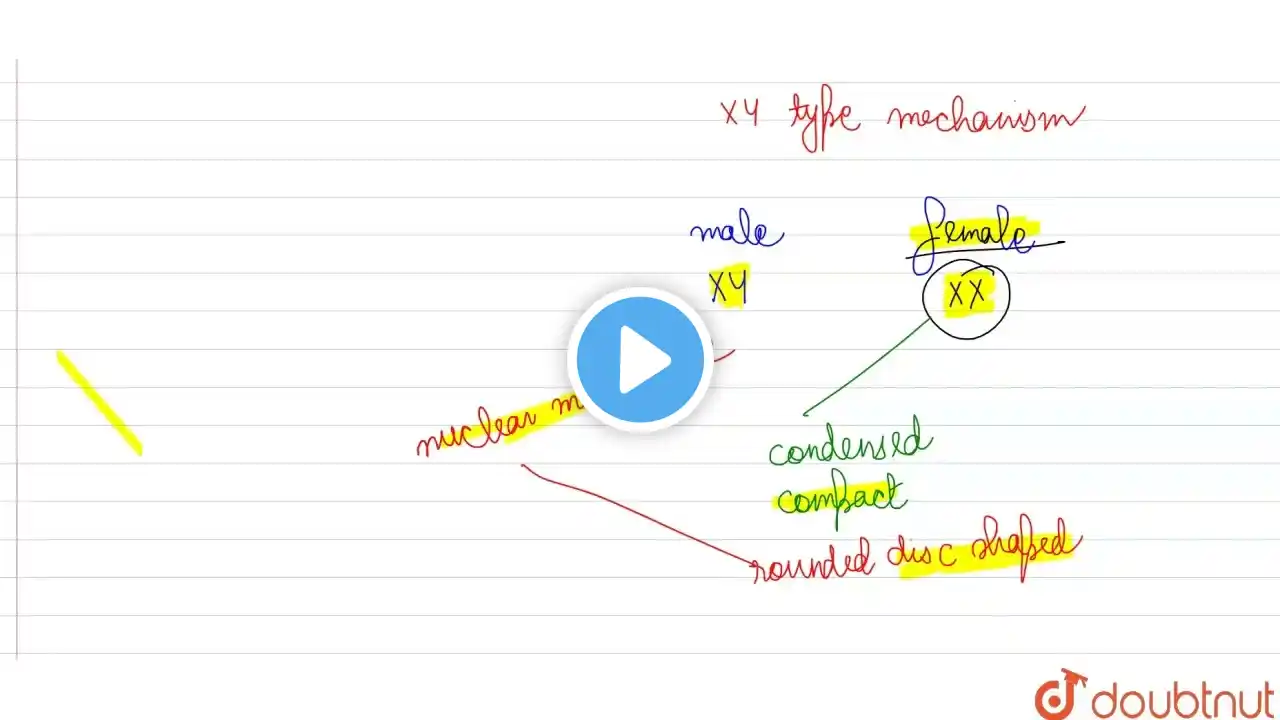 XY type mechanism
male female
XY XX
nuclear
condensed
compact
rounded disc shaped
doubtnut